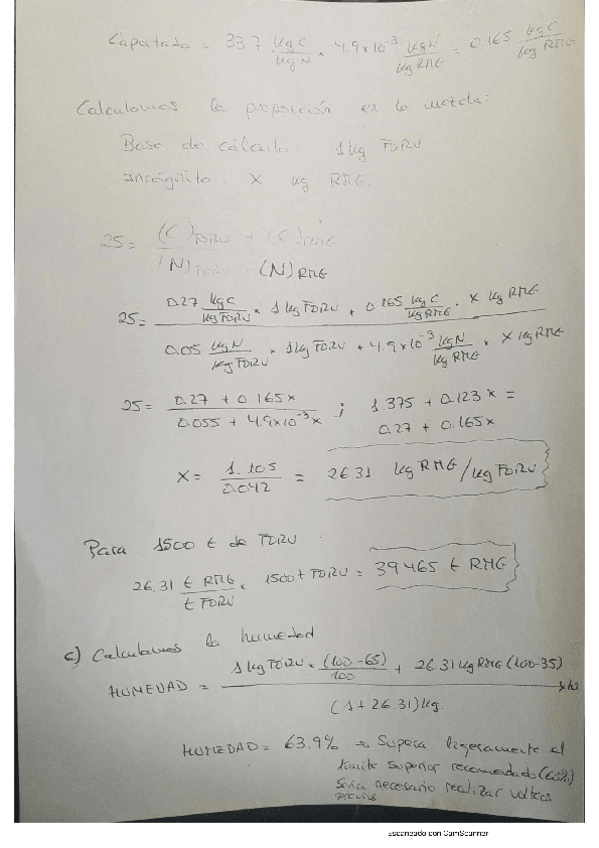 Caportado = 33.7 kgC/kgN * 4.9x10⁻³ kgN/kg RMG = 0.165 kgC/kg RMG
Calculamos la proporción en la mezcla:
Base de cálculo: 1 kg FORU
Incógnita: X kg RMG.
25 = (C)FORU + (C)RMG / (N)FORU (N)RMG
25 = 0.27 kgC/kg FORU * 1 kg FORU + 0.165 kgC/kg RMG * X kg RMG / 0.05 kgN/kg FORU * 1 kg FORU + 4.9x10⁻³ kgN/kg RMG * X kg RMG
25 = 0.27 + 0.165x / 0.055 + 4.9x10⁻³x ; 1.375 + 0.123x =
0.27 + 0.165x
X = 1.105/0.042 = 26.31 kg RMG/kg FORU
Para 1500 t de FORU
26.31 t RMG/t FORU * 1500 t FORU = 39465 t RMG
c) Calculamos la humedad
HUMEDAD = 1 kg FORU * (100-65)/100 + 26.31 kg RMG (100-35) / (1+26.31) kg.
HUMEDAD = 63.9% => Supera ligeramente el
límite superior recomendado (60%)
Sería necesario realizar volteos
previos
Escaneado con CamScanner